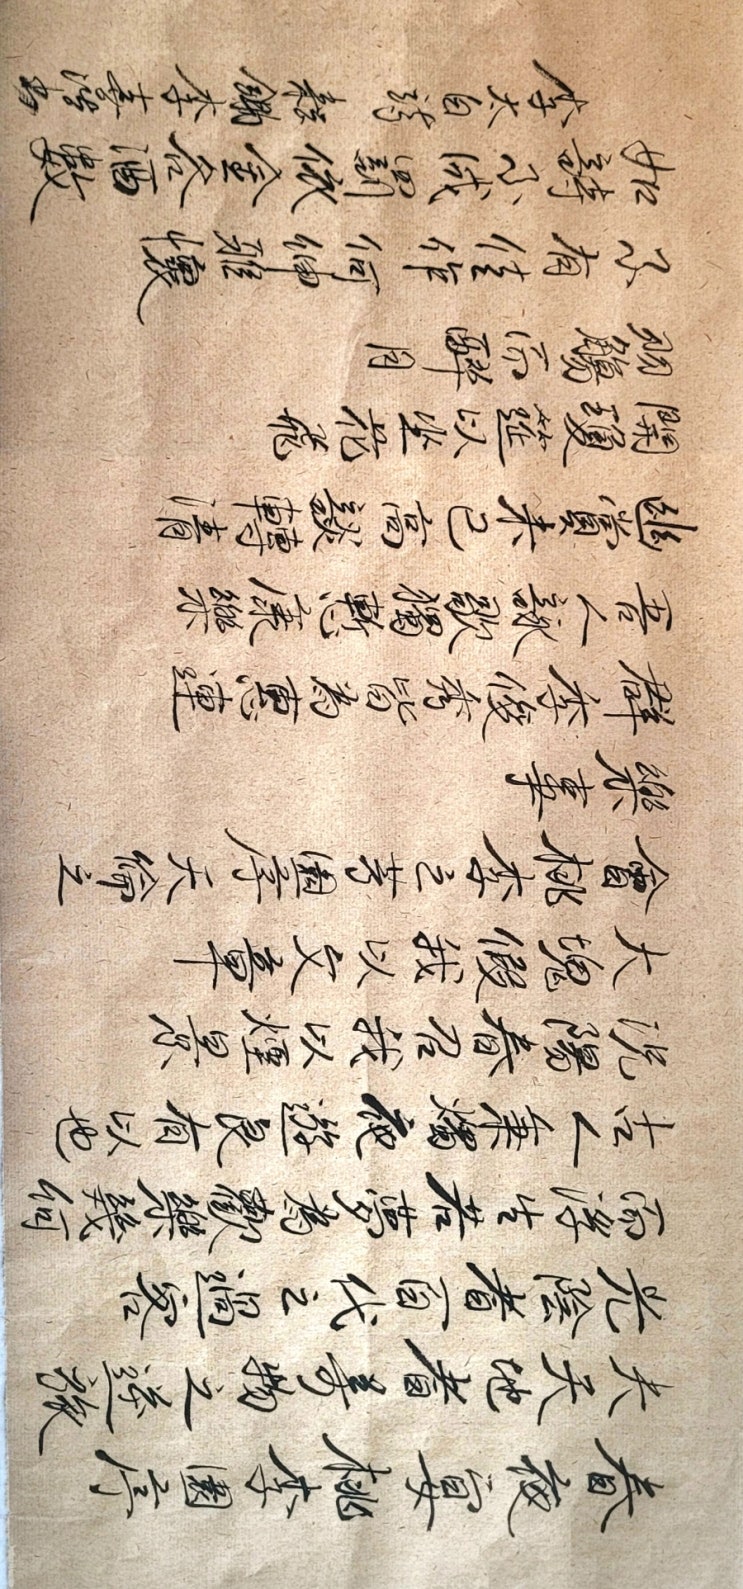 春夜宴桃李園序
夫天地者萬物之逆旅
光陰者百代之過客
而浮生若夢為歡樂幾何
古人秉燭夜遊良有以也
況陽春召我以煙景
大塊假我以文章
會桃李之芳園序天倫之
樂事
群季俊秀皆為惠連
吾人詠歌獨慚康樂
幽賞未已高談轉清
開瓊筵以坐花飛
羽觴而醉月
不有佳作何伸雅懷
如詩不成罰依金谷酒數
李太白詩